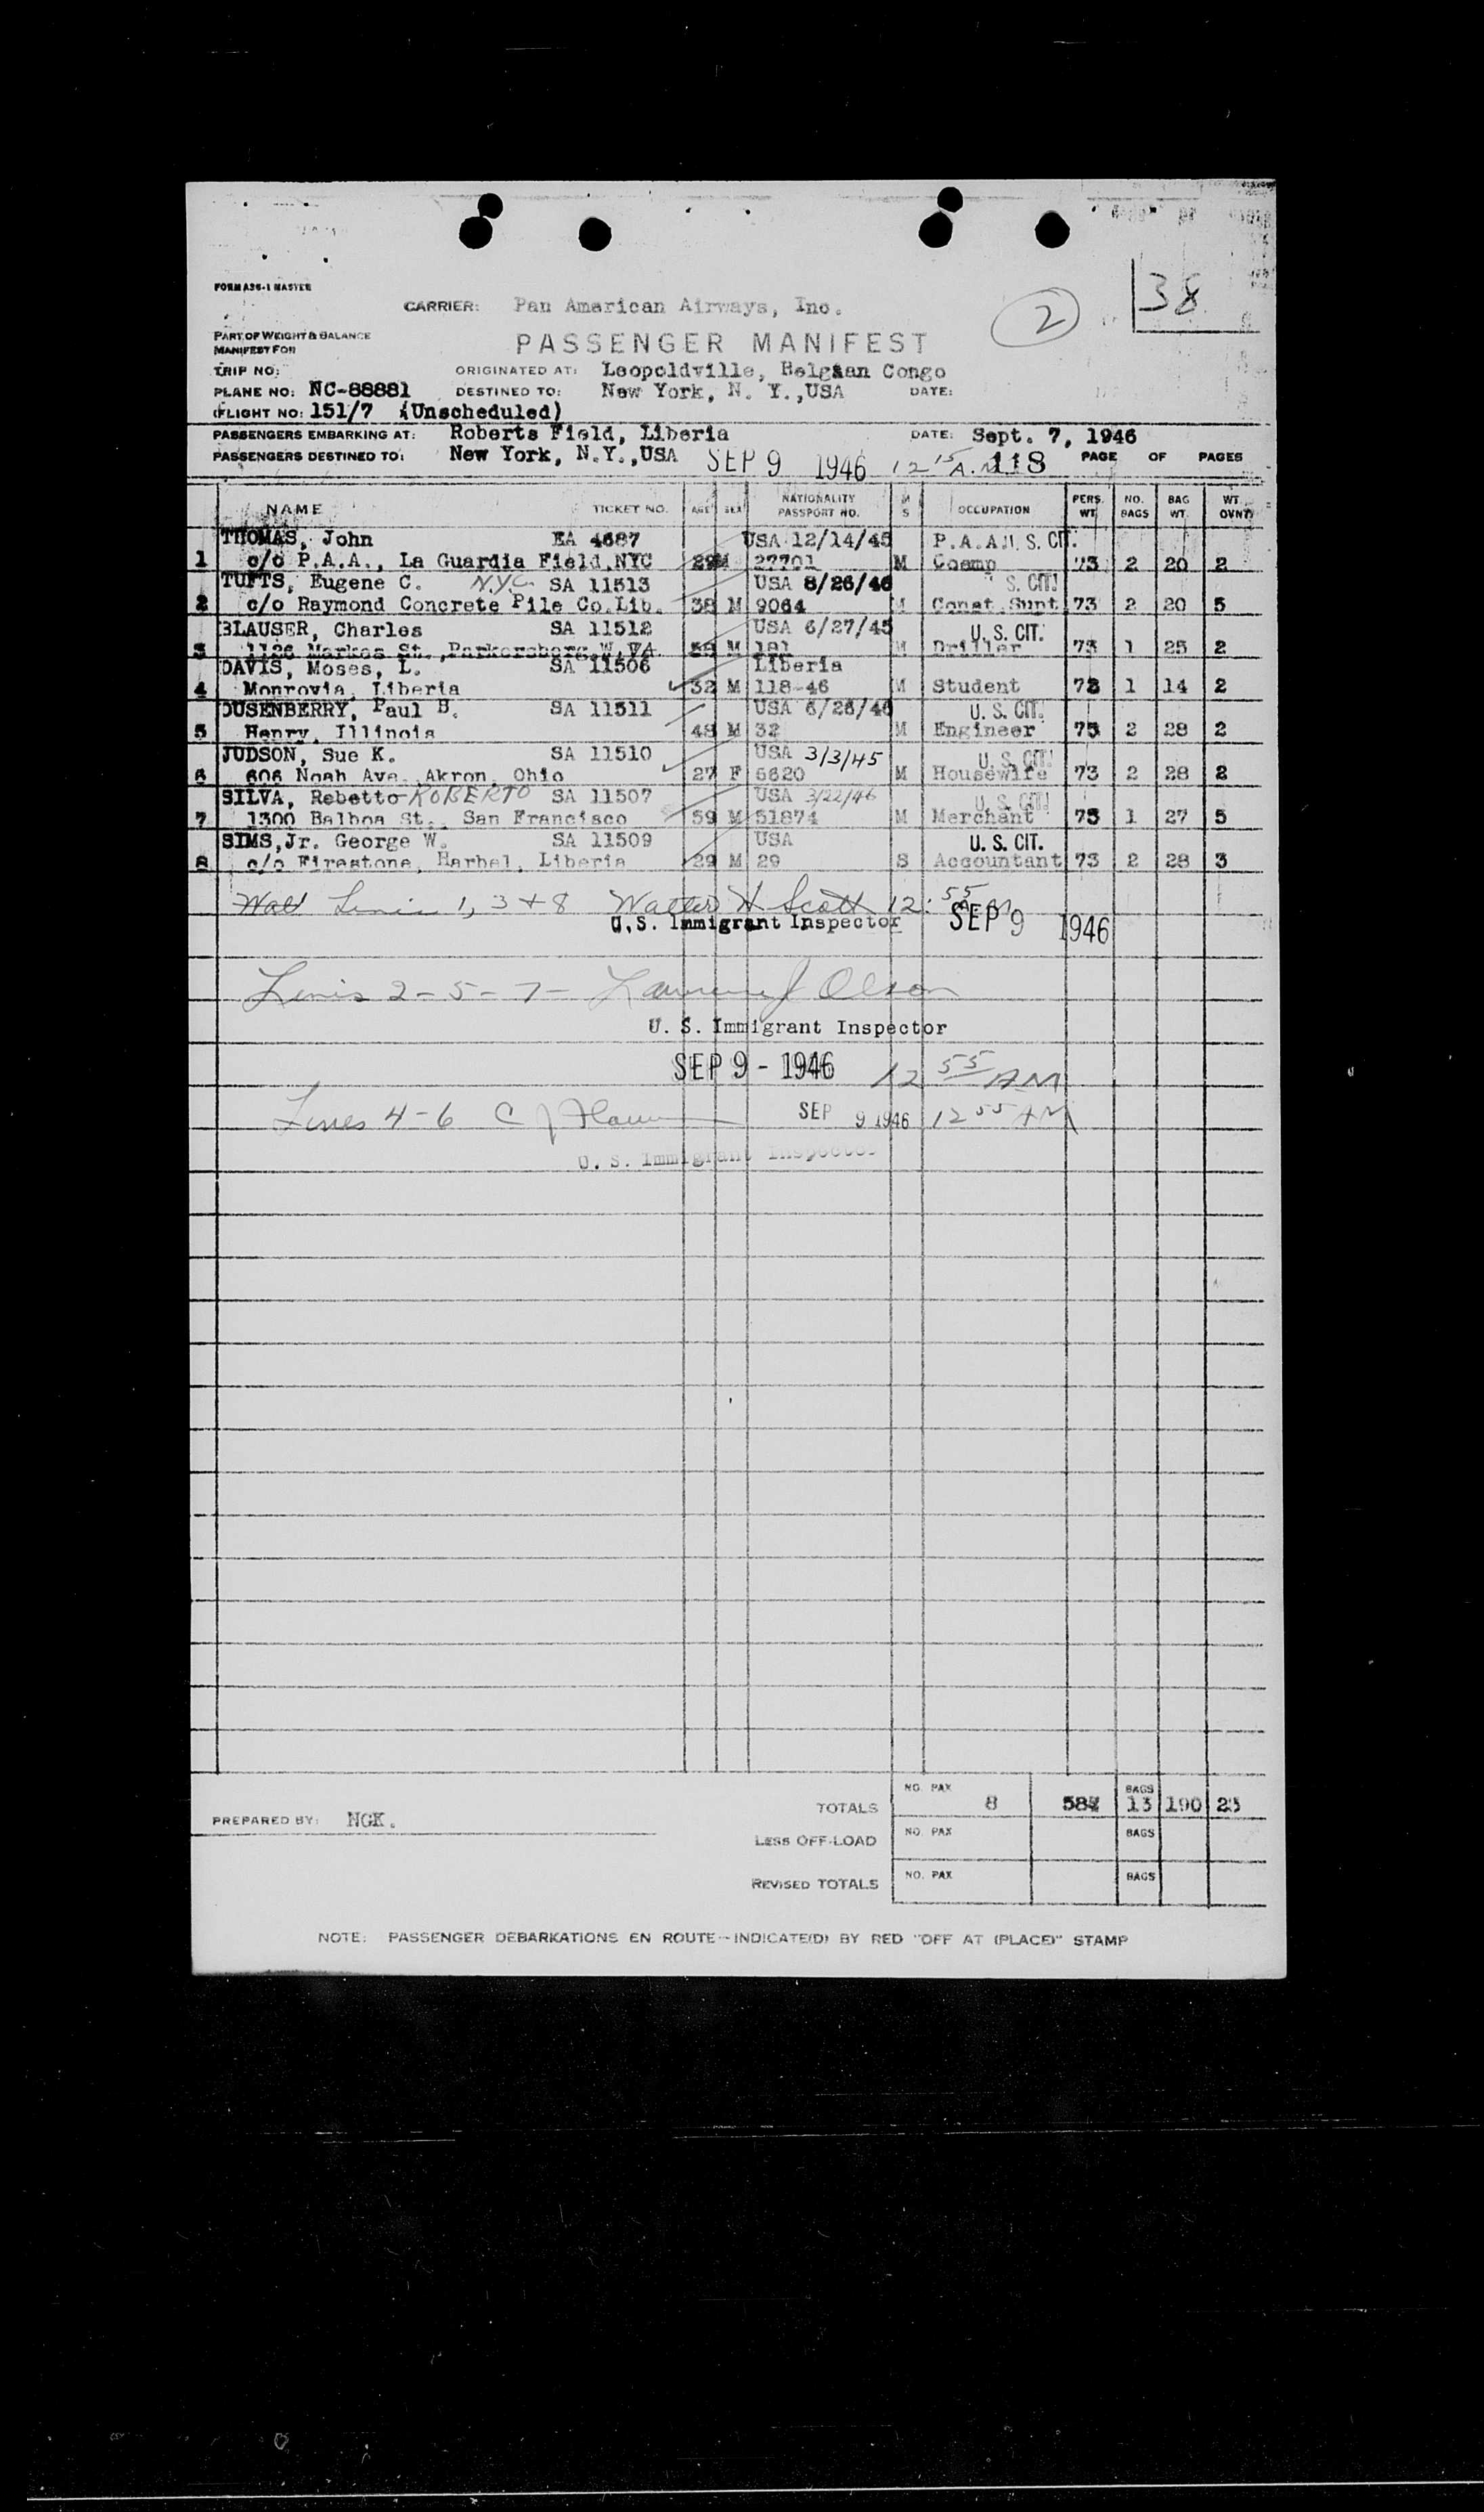 FORM A36-1 MASTER
CARRIER: Pan American Airways, Inc.
2
38
PART OF WEIGHT & BALANCE
MANIFEST FOR
PASSENGER MANIFEST
TRIP NO:
ORIGINATED AT: Leopoldville, Belgian Congo
PLANE NO: NC-88881 DESTINED TO: New York, N. Y.,USA DATE:
(FLIGHT NO: 151/7 (Unscheduled)
PASSENGERS EMBARKING AT: Roberts Field, Liberia DATE: Sept. 7, 1946
PASSENGERS DESTINED TO: New York, N.Y.,USA SEP 9 1946 12 15 A.M. 118 PAGE OF PAGES
NAME TICKET NO. AGE SEX NATIONALITY PASSPORT NO. M S OCCUPATION PERS. WT. NO. BAGS BAG WT. WT. OVNT
THOMAS, John EA 4687 USA 12/14/45 P.A.A. U. S. CIT.
1 c/o P.A.A., La Guardia Field,NYC 29 M 27701 M Coamp 73 2 20 2
TUFTS, Eugene C. N.Y.C. SA 11513 USA 8/26/46 S. CIT.
2 c/o Raymond Concrete Pile Co.Lib. 38 M 9064 M Const.Supt 73 2 20 5
BLAUSER, Charles SA 11512 USA 6/27/45 U. S. CIT.
3 1126 Markes St.,Parkersberg,W.VA. M 181 M Driller 73 1 25 2
DAVIS, Moses, L. SA 11506 Liberia
4 Monrovia, Liberia 32 M 118-46 M Student 73 1 14 2
DUSENBERRY, Paul B. SA 11511 USA 6/26/46 U. S. CIT.
5 Henry, Illinois 48 M 32 M Engineer 73 2 28 2
JUDSON, Sue K. SA 11510 USA 3/3/45 U. S. CIT.
6 606 Noah Ave. Akron, Ohio 27 F 6620 M Housewife 73 2 28 2
SILVA, Rebetto ROBERTO SA 11507 USA 3/22/46 U. S. CIT.
7 1300 Balboa St., San Francisco 59 M 51874 M Merchant 73 1 27 5
SIMS,Jr. George W. SA 11509 USA U. S. CIT.
8 c/o Firestone, Harbel, Liberia 29 M 29 S Accountant 73 2 28 3
Lines 1, 3 + 8 Walter H Scott 12:55 AM
U.S. Immigrant Inspector SEP 9 1946
Lines 2-5-7- Lawrence J Olson
U. S. Immigrant Inspector
SEP 9 - 1946 12 55 AM
Lines 4-6 C J SEP 9 1946 12 55 AM
U. S. Immigrant Inspector
TOTALS NO. PAX 8 584 BAGS 13 190 23
PREPARED BY: NGK.
LESS OFF-LOAD NO. PAX BAGS
REVISED TOTALS NO. PAX BAGS
NOTE: PASSENGER DEBARKATIONS EN ROUTE--INDICATE(D) BY RED "OFF AT (PLACE)" STAMP